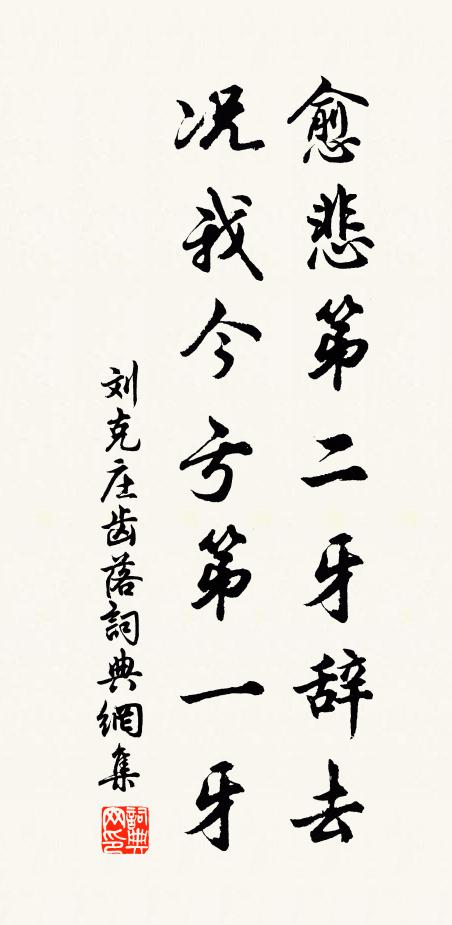 愈悲第二牙辞去
况我今亏第一牙
刘克庄齿落詞典網集
詞典网印